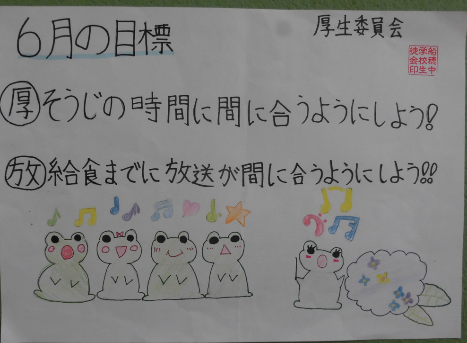 6月の目標
厚生委員会
厚 そうじの時間に間に合うようにしよう!
放 給食までに放送が間に合うようにしよう!!